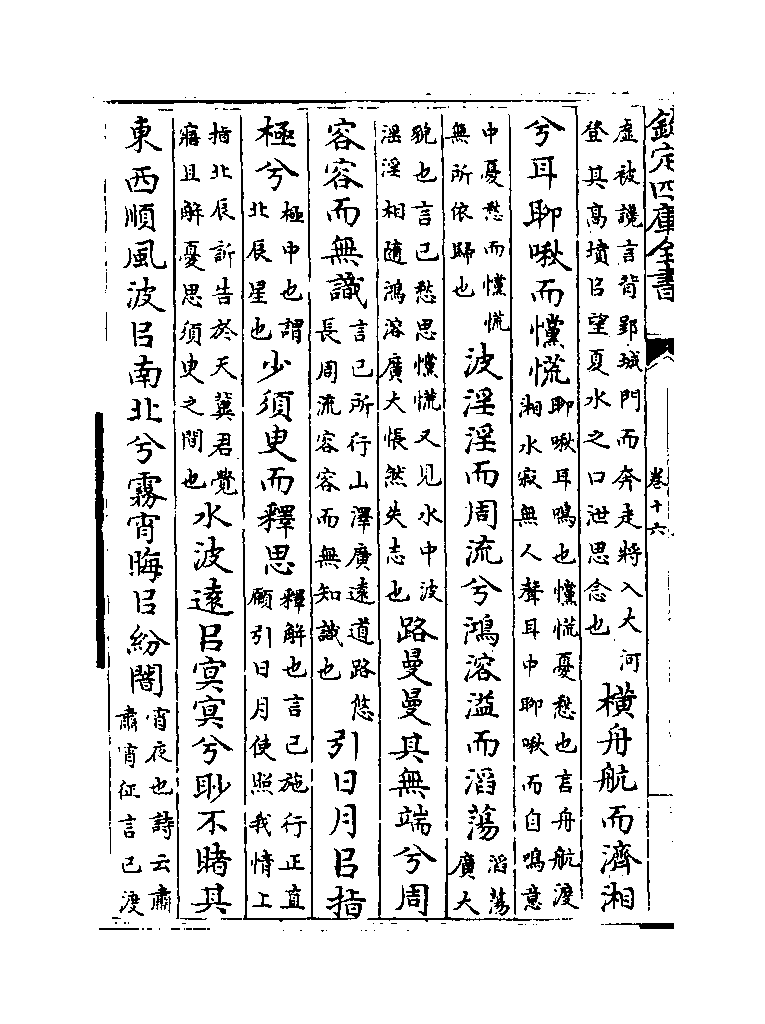 欽定四庫全書
卷十六
虛被讒言背郢城門而奔走將入大河
登其高墳㠯望夏水之口泄思念也
橫舟航而濟湘
兮耳聊啾而戃慌
聊啾耳鳴也戃慌憂愁也言舟航渡
湘水寂無人聲耳中聊啾而自鳴意
中憂愁而戃慌
無所依歸也
波淫淫而周流兮鴻溶溢而滔蕩
滔蕩
廣大
貌也言己愁思戃慌又見水中波
淫淫相隨鴻溶廣大悵然失志也
路曼曼其無端兮周
容容而無識
言己所行山澤廣遠道路悠
長周流容容而無知識也
引日月㠯指
極兮
極中也謂
北辰星也
少須臾而釋思
釋解也言己施行正直
願引日月使照我情上
指北辰訴告於天冀君覺
寤且解憂思須臾之間也
水波遠㠯冥冥兮眇不睹其
東西順風波㠯南北兮霧宵晦㠯紛闇
宵夜也詩云肅
肅宵征言己渡